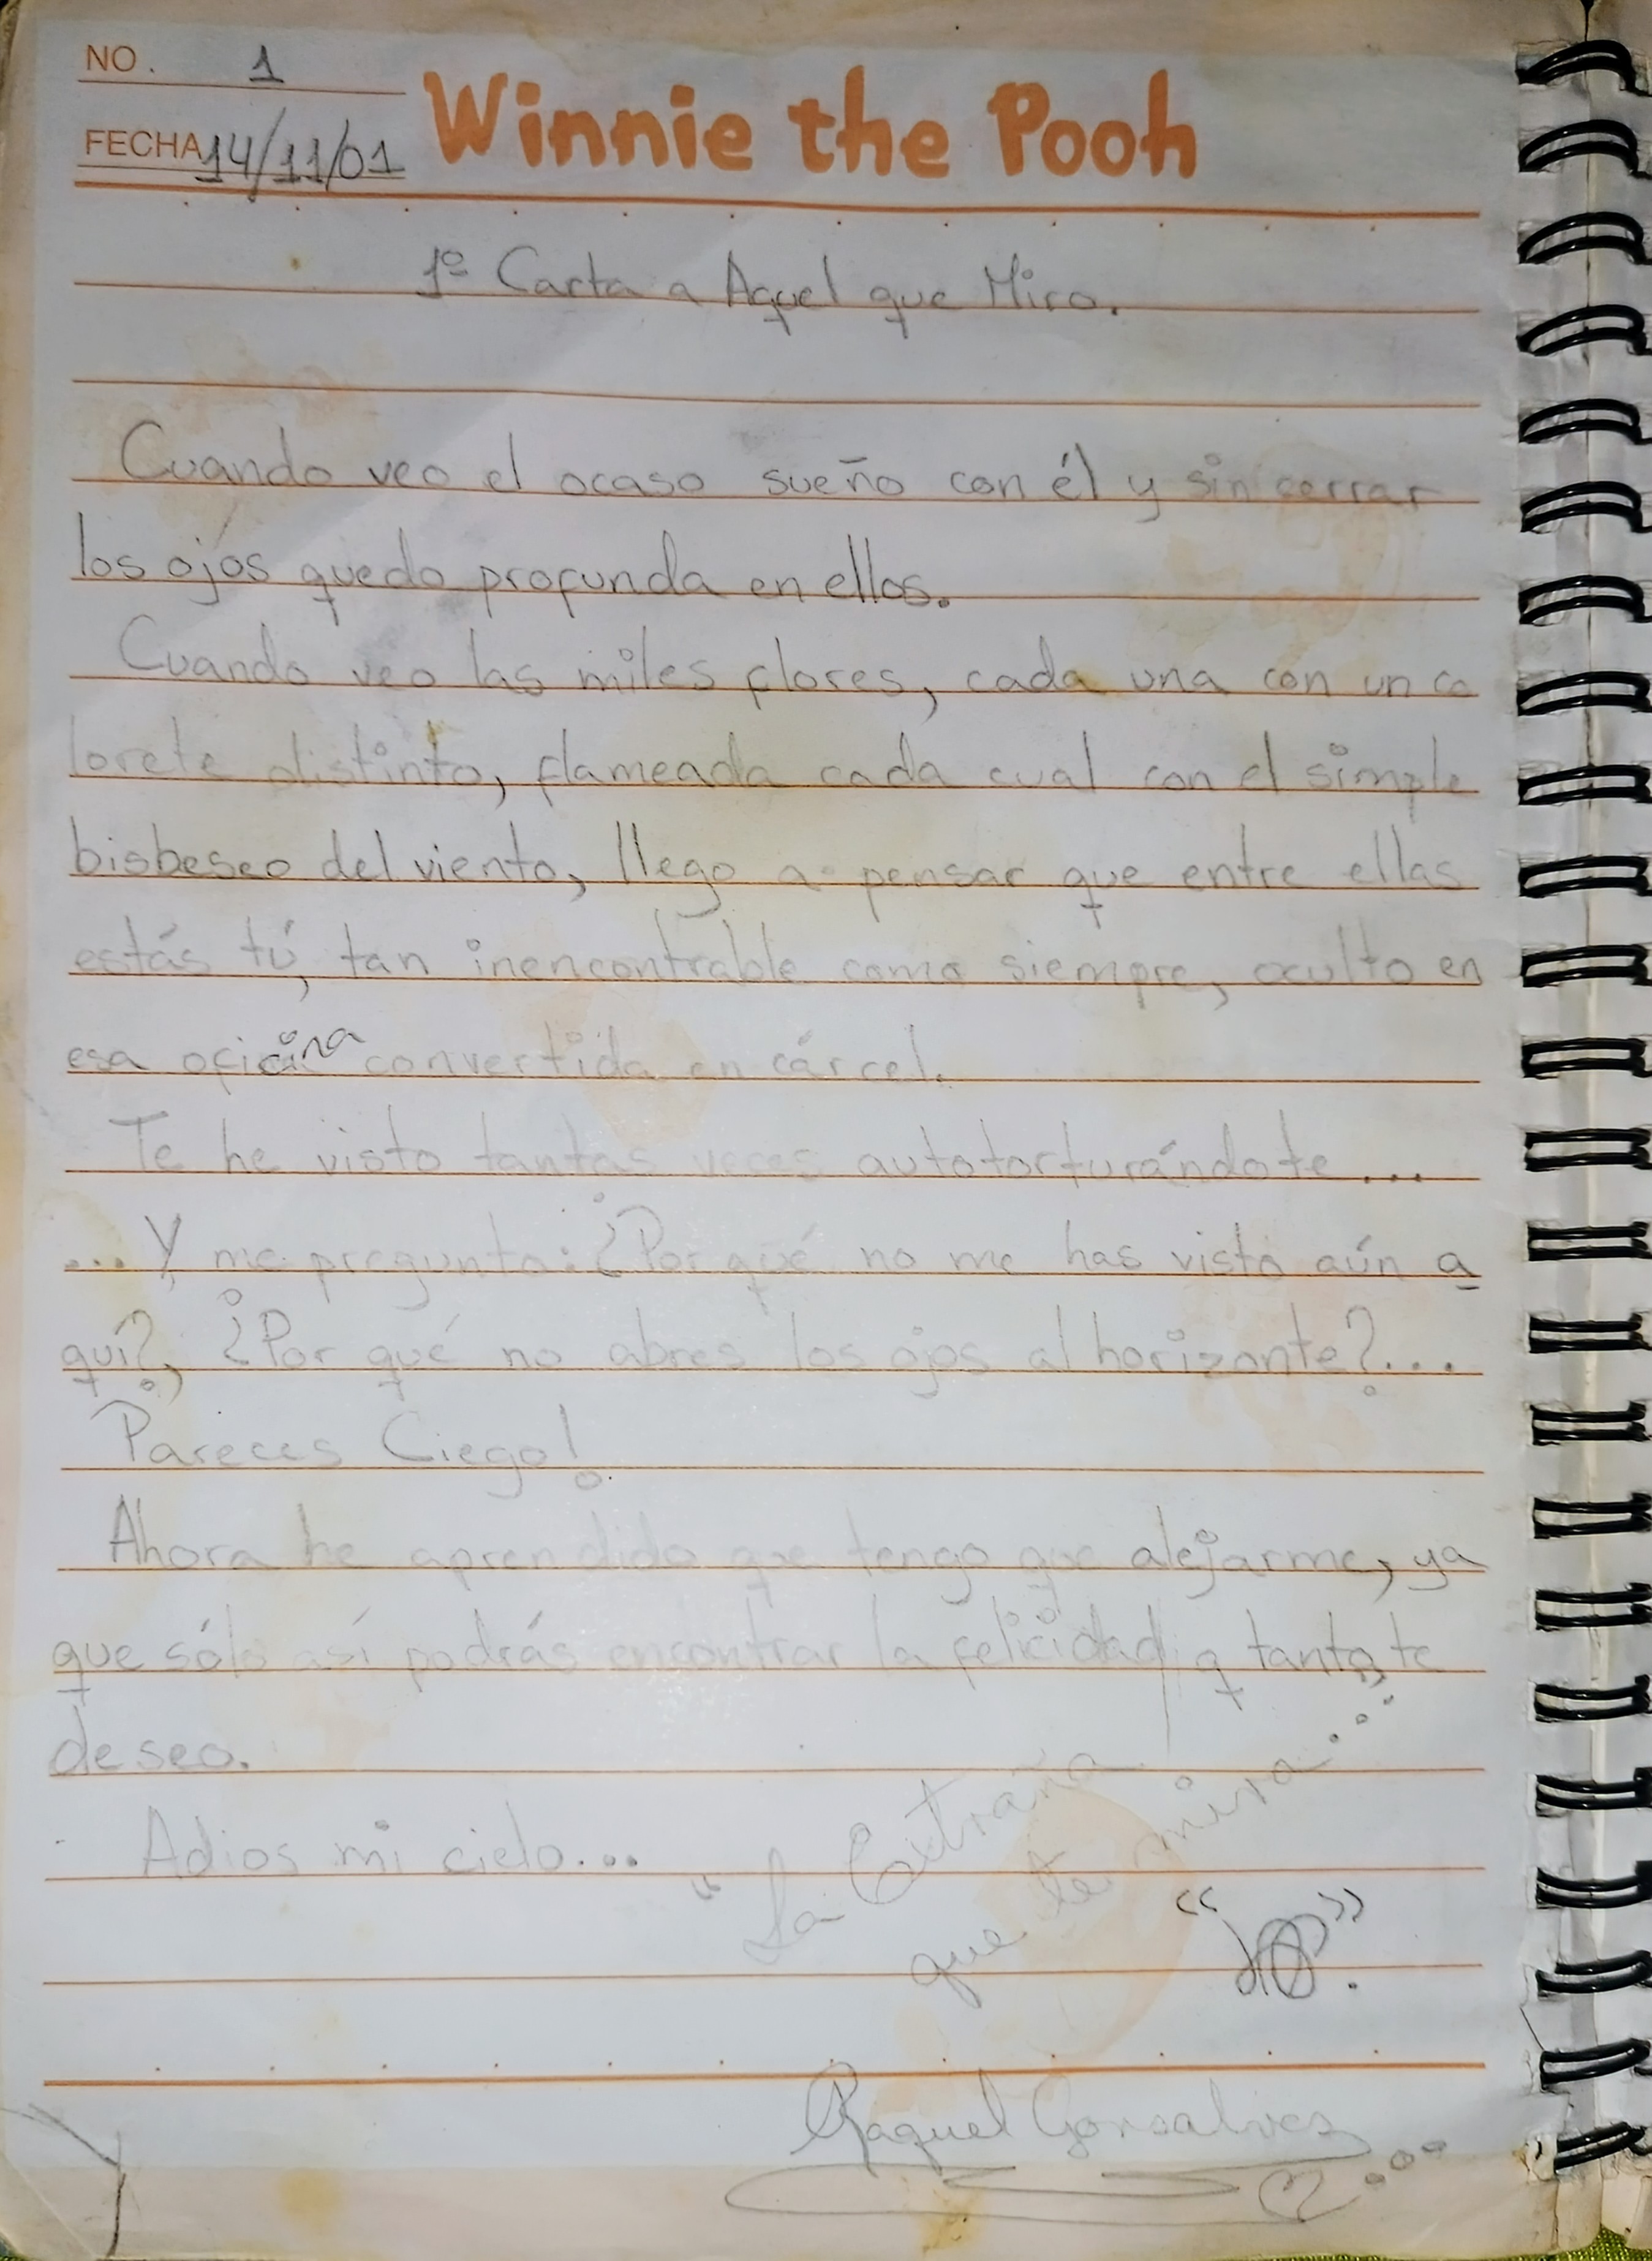 NO. 1
FECHA 14/11/01
Winnie the Pooh
1º Carta a Aquel que Miro.
Cuando veo el ocaso sueño con él y sin cerrar
los ojos quedo profunda en ellos.
Cuando veo las miles flores, cada una con un co
lorete distinto, flameada cada cual con el simple
bisbeseo del viento, llego a pensar que entre ellas
estás tú, tan inencontrable como siempre, oculto en
esa oficina convertida en cárcel.
Te he visto tantas veces autotorturándote...
... Y me pregunto: ¿Por qué no me has visto aún a
quí?, ¿Por qué no abres los ojos al horizonte?...
Pareces Ciego!
Ahora he aprendido que tengo que alejarme, ya
que sólo así podrás encontrar la felicidad q tanto te
deseo.
Adios mi cielo...
"La Extraña
que te mira..."
Raquel Gonsalvez